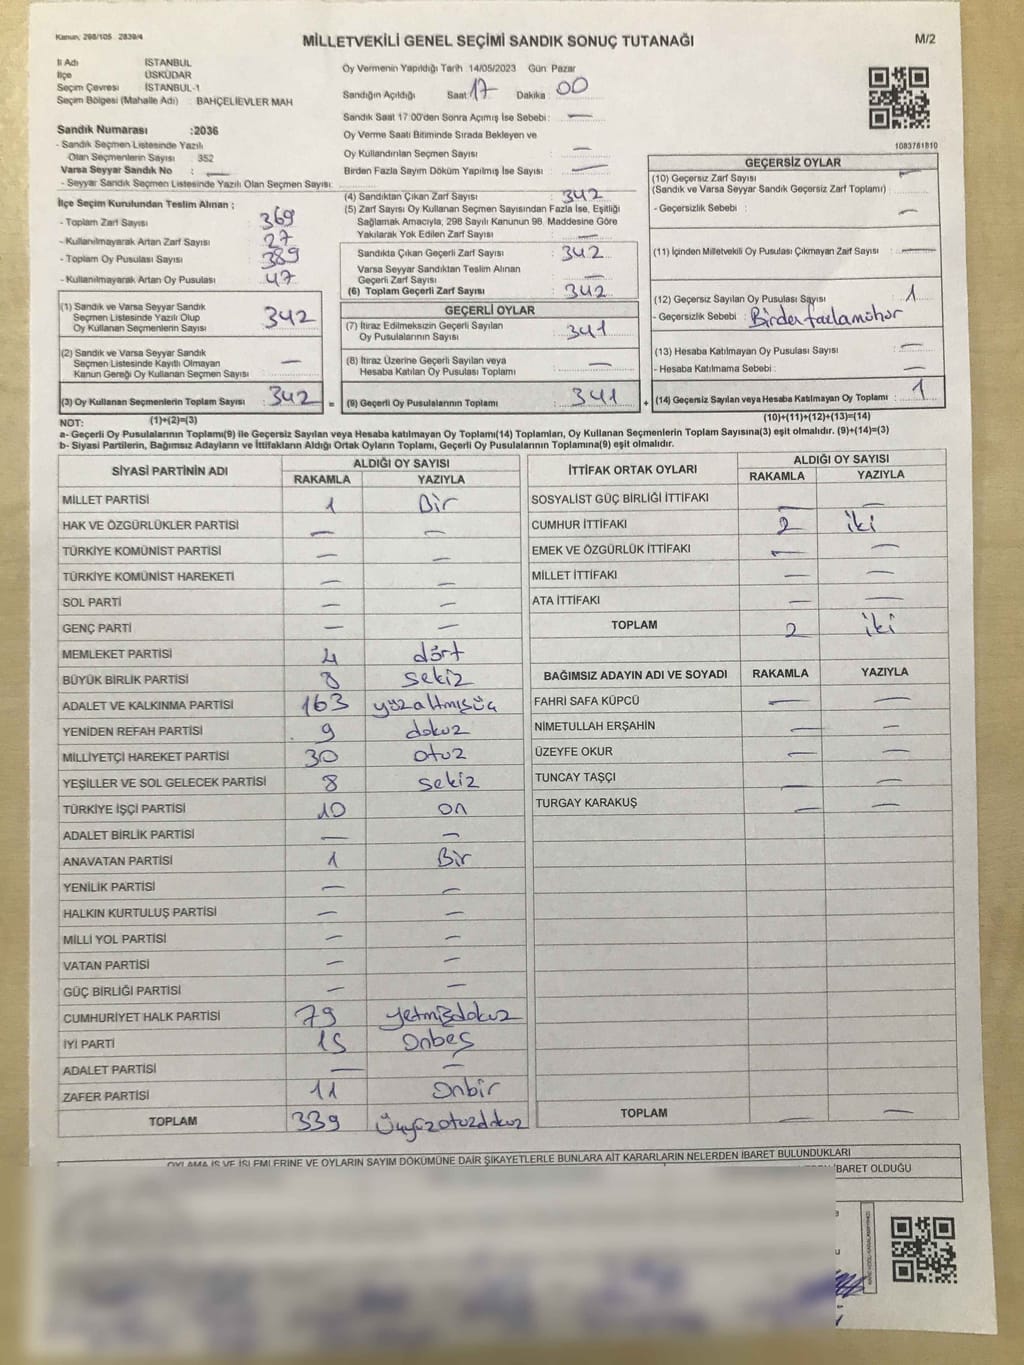 Kanun; 298/105 2839/4
MİLLETVEKİLİ GENEL SEÇİMİ SANDIK SONUÇ TUTANAĞI
M/2
İl Adı İSTANBUL
İlçe ÜSKÜDAR
Seçim Çevresi İSTANBUL-1
Seçim Bölgesi (Mahalle Adı) : BAHÇELİEVLER MAH
Sandık Numarası :2036
- Sandık Seçmen Listesinde Yazılı
Olan Seçmenlerin Sayısı : 352
Varsa Seyyar Sandık No : —
- Seyyar Sandık Seçmen Listesinde Yazılı Olan Seçmen Sayısı:
İlçe Seçim Kurulundan Teslim Alınan ;
- Toplam Zarf Sayısı 369
- Kullanılmayarak Artan Zarf Sayısı 27
- Toplam Oy Pusulası Sayısı 389
- Kullanılmayarak Artan Oy Pusulası 47
(1) Sandık ve Varsa Seyyar Sandık
Seçmen Listesinde Yazılı Olup
Oy Kullanan Seçmenlerin Sayısı 342
(2) Sandık ve Varsa Seyyar Sandık
Seçmen Listesinde Kayıtlı Olmayan
Kanun Gereği Oy Kullanan Seçmen Sayısı —
(3) Oy Kullanan Seçmenlerin Toplam Sayısı 342 =
Oy Vermenin Yapıldığı Tarih :14/05/2023 Gün: Pazar
Sandığın Açıldığı Saat: 17 Dakika : 00
Sandık Saat 17:00'den Sonra Açılmış İse Sebebi : —
Oy Verme Saati Bitiminde Sırada Bekleyen ve
Oy Kullandırılan Seçmen Sayısı —
Birden Fazla Sayım Döküm Yapılmış İse Sayısı : —
(4) Sandıktan Çıkan Zarf Sayısı : 342
(5) Zarf Sayısı Oy Kullanan Seçmen Sayısından Fazla İse, Eşitliği
Sağlamak Amacıyla; 298 Sayılı Kanunun 98. Maddesine Göre
Yakılarak Yok Edilen Zarf Sayısı —
Sandıkta Çıkan Geçerli Zarf Sayısı : 342
Varsa Seyyar Sandıktan Teslim Alınan
Geçerli Zarf Sayısı —
(6) Toplam Geçerli Zarf Sayısı : 342
GEÇERLİ OYLAR
(7) İtiraz Edilmeksizin Geçerli Sayılan
Oy Pusulalarının Sayısı : 341
(8) İtiraz Üzerine Geçerli Sayılan veya
Hesaba Katılan Oy Pusulası Toplamı —
(9) Geçerli Oy Pusulalarının Toplamı : 341 +
1083761810
GEÇERSİZ OYLAR
(10) Geçersiz Zarf Sayısı —
(Sandık ve Varsa Seyyar Sandık Geçersiz Zarf Toplamı)
- Geçersizlik Sebebi : —
(11) İçinden Milletvekili Oy Pusulası Çıkmayan Zarf Sayısı : —
(12) Geçersiz Sayılan Oy Pusulası Sayısı 1
- Geçersizlik Sebebi : Birden fazla mühür
(13) Hesaba Katılmayan Oy Pusulası Sayısı —
- Hesaba Katılmama Sebebi : —
(14) Geçersiz Sayılan veya Hesaba Katılmayan Oy Toplamı : 1
NOT: (1)+(2)=(3) (10)+(11)+(12)+(13)=(14)
a- Geçerli Oy Pusulalarının Toplamı(9) ile Geçersiz Sayılan veya Hesaba katılmayan Oy Toplamı(14) Toplamları, Oy Kullanan Seçmenlerin Toplam Sayısına(3) eşit olmalıdır. (9)+(14)=(3)
b- Siyasi Partilerin, Bağımsız Adayların ve İttifakların Aldığı Ortak Oyların Toplamı, Geçerli Oy Pusulalarının Toplamına(9) eşit olmalıdır.
SİYASİ PARTİNİN ADI ALDIĞI OY SAYISI
RAKAMLA YAZIYLA
MİLLET PARTİSİ 1 Bir
HAK VE ÖZGÜRLÜKLER PARTİSİ — —
TÜRKİYE KOMÜNİST PARTİSİ — —
TÜRKİYE KOMÜNİST HAREKETİ — —
SOL PARTİ — —
GENÇ PARTİ — —
MEMLEKET PARTİSİ 4 dört
BÜYÜK BİRLİK PARTİSİ 8 sekiz
ADALET VE KALKINMA PARTİSİ 163 yüzaltmışüç
YENİDEN REFAH PARTİSİ 9 dokuz
MİLLİYETÇİ HAREKET PARTİSİ 30 otuz
YEŞİLLER VE SOL GELECEK PARTİSİ 8 sekiz
TÜRKİYE İŞÇİ PARTİSİ 10 on
ADALET BİRLİK PARTİSİ — —
ANAVATAN PARTİSİ 1 Bir
YENİLİK PARTİSİ — —
HALKIN KURTULUŞ PARTİSİ — —
MİLLİ YOL PARTİSİ — —
VATAN PARTİSİ — —
GÜÇ BİRLİĞİ PARTİSİ — —
CUMHURİYET HALK PARTİSİ 79 yetmişdokuz
İYİ PARTİ 15 onbeş
ADALET PARTİSİ — —
ZAFER PARTİSİ 11 onbir
TOPLAM 339 üçyüzotuzdokuz
İTTİFAK ORTAK OYLARI ALDIĞI OY SAYISI
RAKAMLA YAZIYLA
SOSYALİST GÜÇ BİRLİĞİ İTTİFAKI — —
CUMHUR İTTİFAKI 2 iki
EMEK VE ÖZGÜRLÜK İTTİFAKI — —
MİLLET İTTİFAKI — —
ATA İTTİFAKI — —
TOPLAM 2 iki
BAĞIMSIZ ADAYIN ADI VE SOYADI RAKAMLA YAZIYLA
FAHRİ SAFA KÜPCÜ — —
NİMETULLAH ERŞAHİN — —
ÜZEYFE OKUR — —
TUNCAY TAŞÇI — —
TURGAY KARAKUŞ — —
TOPLAM — —
OYLAMA İŞ VE İŞLEMLERİNE VE OYLARIN SAYIM DÖKÜMÜNE DAİR ŞİKAYETLERLE BUNLARA AİT KARARLARIN NELERDEN İBARET BULUNDUKLARI
İBARET OLDUĞU